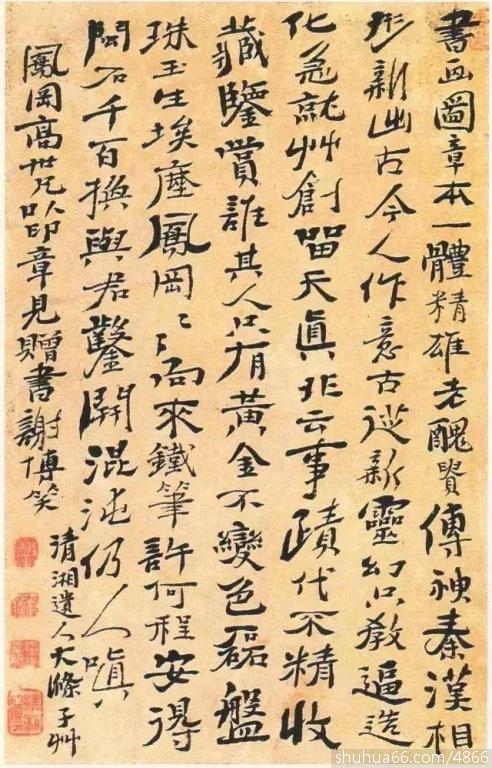 書画圖章本一體精雄老醜貴傳神秦漢相
形新出古今人作意古從新靈幻只教逼造
化急就艸創留天真非云事蹟代不精收
藏鑒賞誰其人只有黃金不變色磊盤
珠玉生埃塵鳳岡〻〻向來鐵筆許何程安得
閩石千百換與君鑿開混沌仍人嗔
鳳岡高世兄以印章見贈書謝博笑
清湘遺人大滌子艸
shuhua66.com/4866